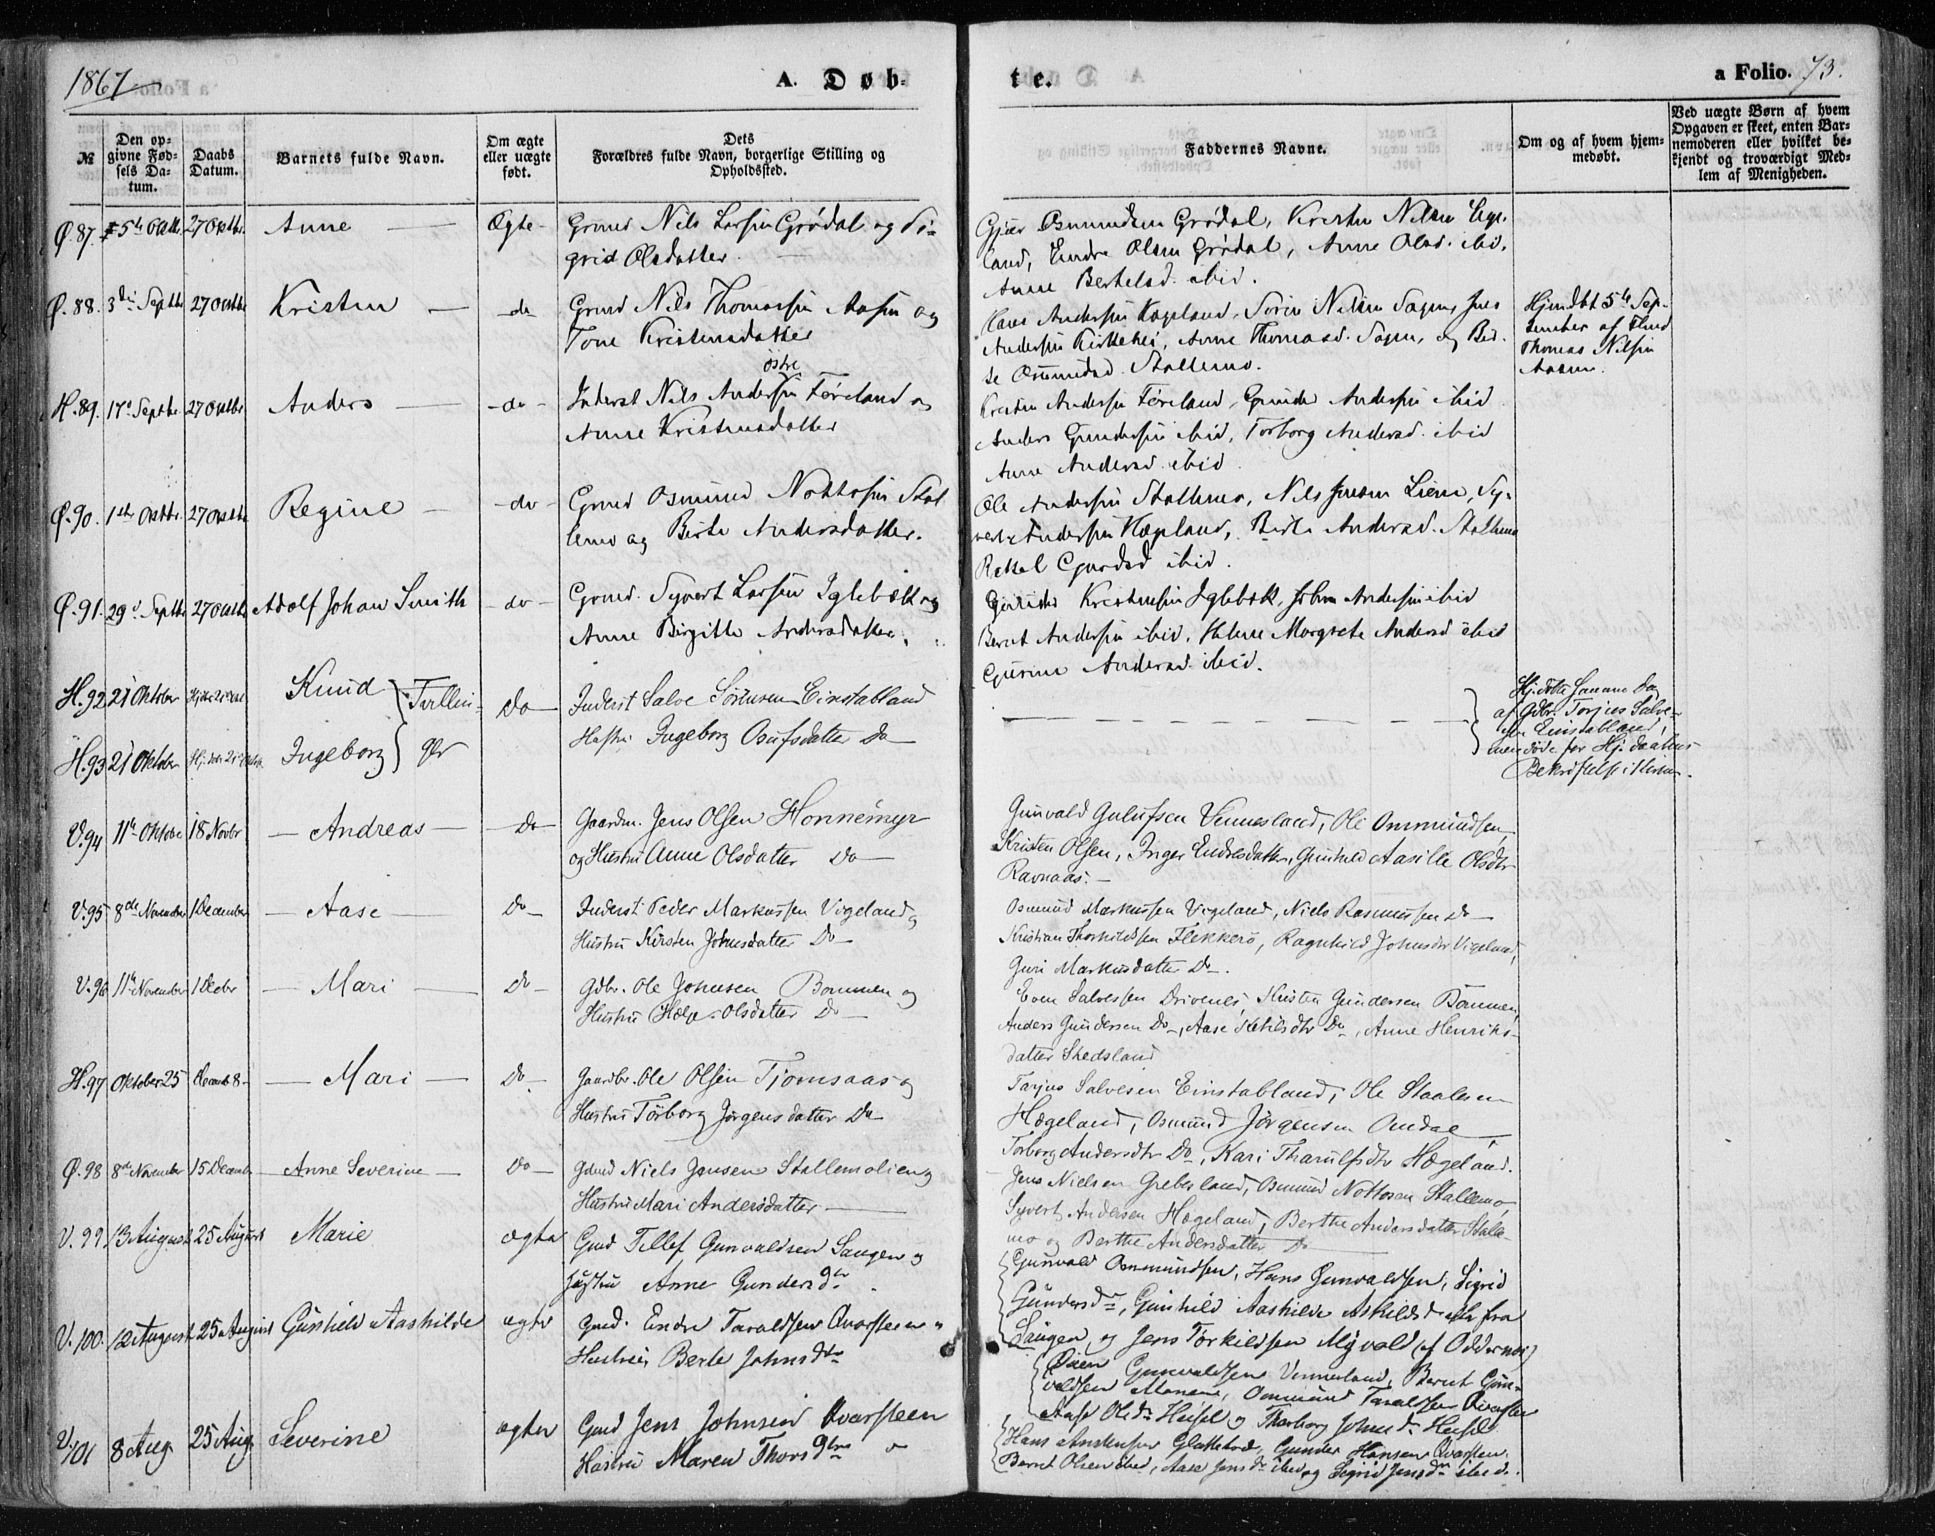 1867
A. Døb-
te.
a Folio. 73.
№
Den op-
givne Fød-
sels Da-
tum.
Daabs
Datum.
Barnets fulde Navn.
Om ægte
eller uægte
født.
Dets
Forældres fulde Navn, borgerlige Stilling og
Opholdssted.
Faddernes Navne.
Om og af hvem hjem-
medøbt.
Ved uægte Børn af hvem
Opgaven er skeet, enten Bar-
nemoderen eller hvilket be-
kjendt og troværdigt Med-
lem af Menigheden.
Ø.87. 5te Oktbr. 27 Oktbr. Anne Ægte Grmd Nils Larsen Grødal og Si-
grid Olsdatter.
Osmundsen Grødal, Kristen Nilsen
land, Endre Olsen Grødal, Anne Olsd. ibid.
Anne Bertelsd. ibid.
Ø.88. 3die Septbr 27 Oktbr Kristen do Grmd Nils Thomassen Aasen og
Tone Kristensdatter
Hans Andersen Hægeland, Søren Nilsen Sagen, Jens
Andersen Kirkehei, Anne Thomasd. Sagen, og Ber-
te Osmundsd. Stallemo.
Hjemdbt 5te Sep-
tember af
Thomas Nilsen
Aasen.
H.89. 17de Septbr. 27 Oktbr Anders do Inderst Nils Andersen østre Føreland og
Anne Kristensdatter
Kristen Andersen Føreland, Gunder Andersen ibid
Anders Gundersen ibid, Torborg Andersd. ibid
Anne Andersd. ibid.
Ø.90. 1ste Oktbr. 27 Oktbr Regine do Grmd Osmund Nottosen Stal-
lemo og Birte Andersdatter.
Ole Andersen Stallemo, Nils Jensen Lien, Sy-
vert Andersen Hægeland, Birte Andersd. Stallemo
Rakel ibid.
Ø.91. 29de Septbr 27 Oktbr Adolf Johan Smith do Grmd. Syvert Larsen Iglebæk og
Anne Birgitte Andersdatter.
Kristensen Iglebæk, John Andersen ibid
Bernt Andersen ibid. Helene Margrete Andersd ibid
Gurine Andersd. ibid.
H.92 21 Oktober Knud Tvillin- Do Inderst Salve Sørensen Einstabland
H.93 21 Oktober Ingeborg ger Hustru Ingeborg Osufsdatter Do
Hj.døbt samme Dag
af Gdbr. Torjus Salve-
sen Einstabland,
men døde før Hj.daabens
Bekræftelse i Kirken.
V.94 11te Oktober 18 Novbr Andreas Do Gaardm. Jens Olsen Honnemyr
og Hustru Anne Olsdatter Do
Gunvald Gulufsen Vennesland, Ole Ommundsen,
Kristen Olsen, Inger Endresdatter, Gunhild Aasille Olsdtr
Ravnaas.
V.95 8de November 1 December Aase Do Inderst Peder Markussen Vigeland og
Hustru Kirsten Johnsdatter Do
Osmund Markussen Vigeland, Niels Rasmussen Do
Kristian Thorkildsen Flekkerø, Ragnhild Johnsdtr Vigeland,
Guri Markusdatter Do.
V.96 11te November 1 Decbr Mari Do Gdbr. Ole Johnsen Bommen og
Hustru Hælge Olsdatter Do
Even Salvessen Drivenes, Kristen Gundersen Bommen
Anders Gundersen Do, Aase Ketilsdtr Do, Anne Henriks-
datter Skedsland
H.97 Oktober 25 Decemb 8 Mari Do Gaardbr. Ole Olsen Tjomsaas og
Hustru Torborg Jørgensdatter Do
Tarjus Salvesen Einstabland, Ole Staalesen
Hægeland, Osmund Jørgensen Omdal
Torborg Andersdtr Do, Kari Tharulfsdtr Hægeland.
Ø.98 8de November 15 Decembr Anne Severine Do Gdmd Niels Jensen Stallemolien og
Hustru Mari Andersdatter
Jens Nielsen Grebesland, Osmund Nottosen Stallemo,
Syvert Andersen Hægeland, Berthe Andersdatter Stalle-
mo og Berthe Andersdatter Do
V.99 13 August 25 August Marie ægte Gmd Tellef Gunvaldsen Saugen og
Hustru Anne Gundersdtr
Gunvald Ommundsen, Hans Gunvaldsen, Sigrid
Gundersdtr, Gunhild Aashilde Askildsd alle fra
Saugen og Jens Torkildsen Myvold (af Oddernes)
V.100. 12 August 25 August Gunhild Aashilde ægte Gmd. Endre Taraldsen Qvarsteen
Hustrue Berte Johnsdtr
Gunvaldsen Vennesland, Bernt Gun-
valdsen Ommund Taraldsen Qvarsten
Aase Olsdr Heisel og Thorborg Johnsdr Heisel
V.101 8 Aug 25 Aug. Severine ægter Gmd Jens Johnsen Qvarsteen
Hustru Maren Thorsdtr
Hans Glattetræ, Gunder Hansen Qvarsten,
Bernt Olsen ibid, Aase Jensdr ibid og Sigrid Jensdtr ibid.